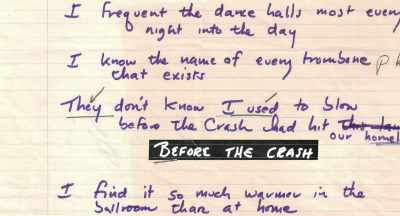 I frequent the dance halls most every
night into the day
I know the name of every trombone
that exists
They don't know I used to blow
before the Crash had hit
our home
BEFORE THE CRASH
I find it so much warmer in the
ballroom than at home